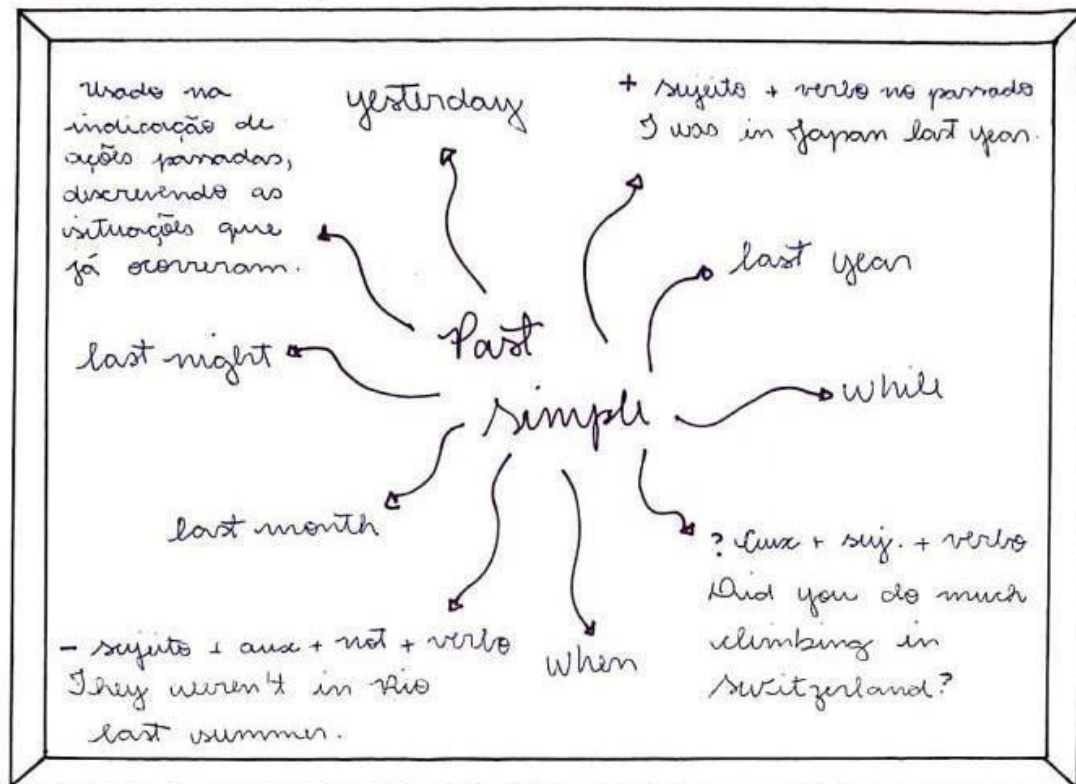 Usado na
indicação de
ações passadas,
descrevendo as
situações que
já ocorreram.
yesterday
+ sujeito + verbo no passado
I was in Japan last year.
last year
Past
simple
last night
while
last month
? Aux + suj. + verbo
Did you do much
climbing in
Switzerland?
- sujeito + aux + not + verbo
They weren't in Rio
last summer.
when